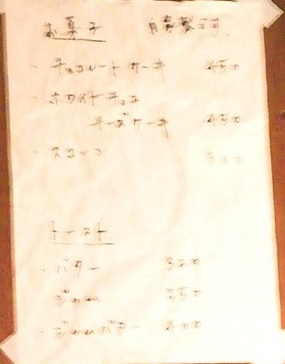 お菓子 自家製です。
・チョコレートケーキ 450
・ホワイトチョコ
チーズケーキ 450
・スコーン 300
トースト
・バター 320
・ジャム 350
・ジャムバター 400